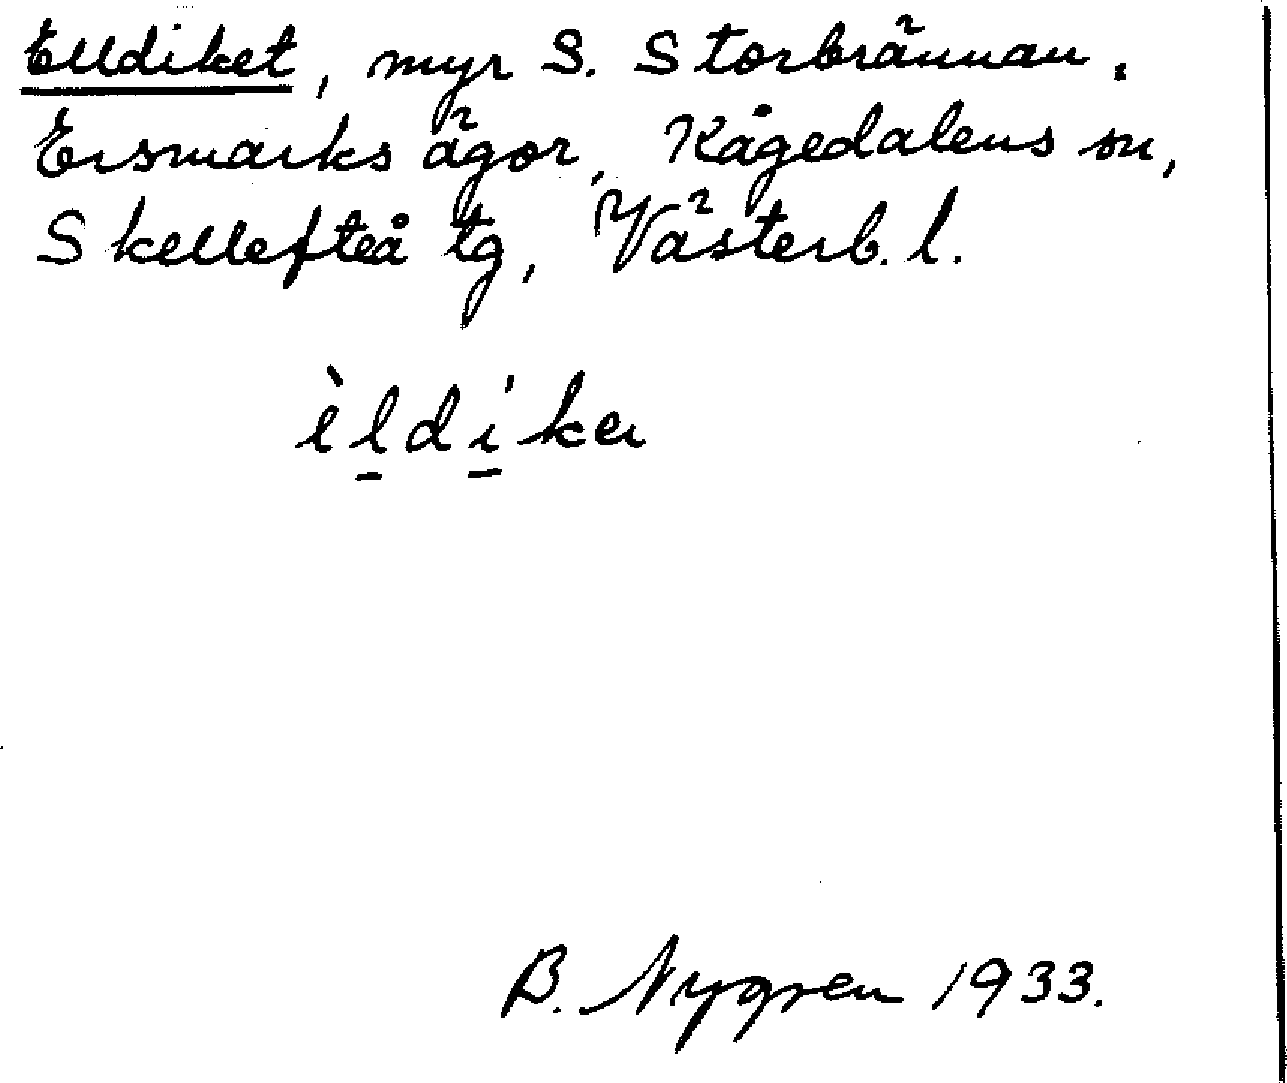 Elldiket, myr S. Storbrännan.
Ersmarks ägor, Kågedalens sn,
Skellefteå tg, Västerb. l.
èldíker
B. Nygren 1933.